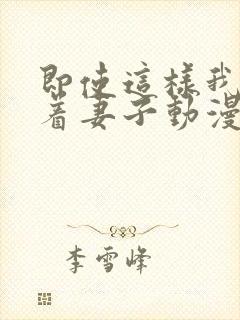 即使這樣我
着妻子動漫
李雪峰